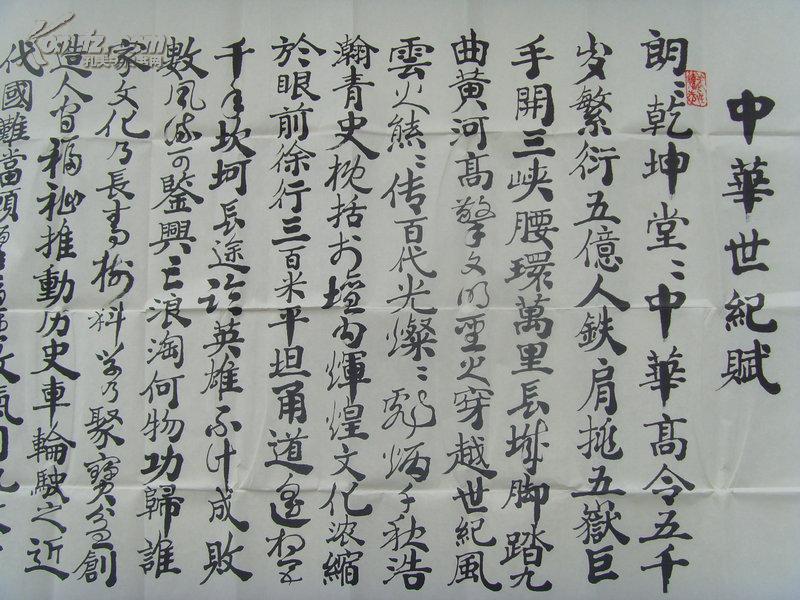 中華世紀賦
朗〻乾坤堂〻中華高令五千
岁繁衍五億人鉄肩挑五嶽巨
手開三峡腰環萬里長城脚踏九
曲黄河高擎文明聖火穿越世紀風
雲火熊〻传百代光燦〻彪炳千秋浩
瀚青史概括於壇内輝煌文化浓縮
於眼前徐行三百米平坦甬道遥想
千年坎坷長途论英雄不计成敗
數風流可鑒興亡浪淘何物功歸誰
家文化乃長青樹科学乃聚寶盆創
造人间福祉推動历史車輪駛之近
代國難當頭